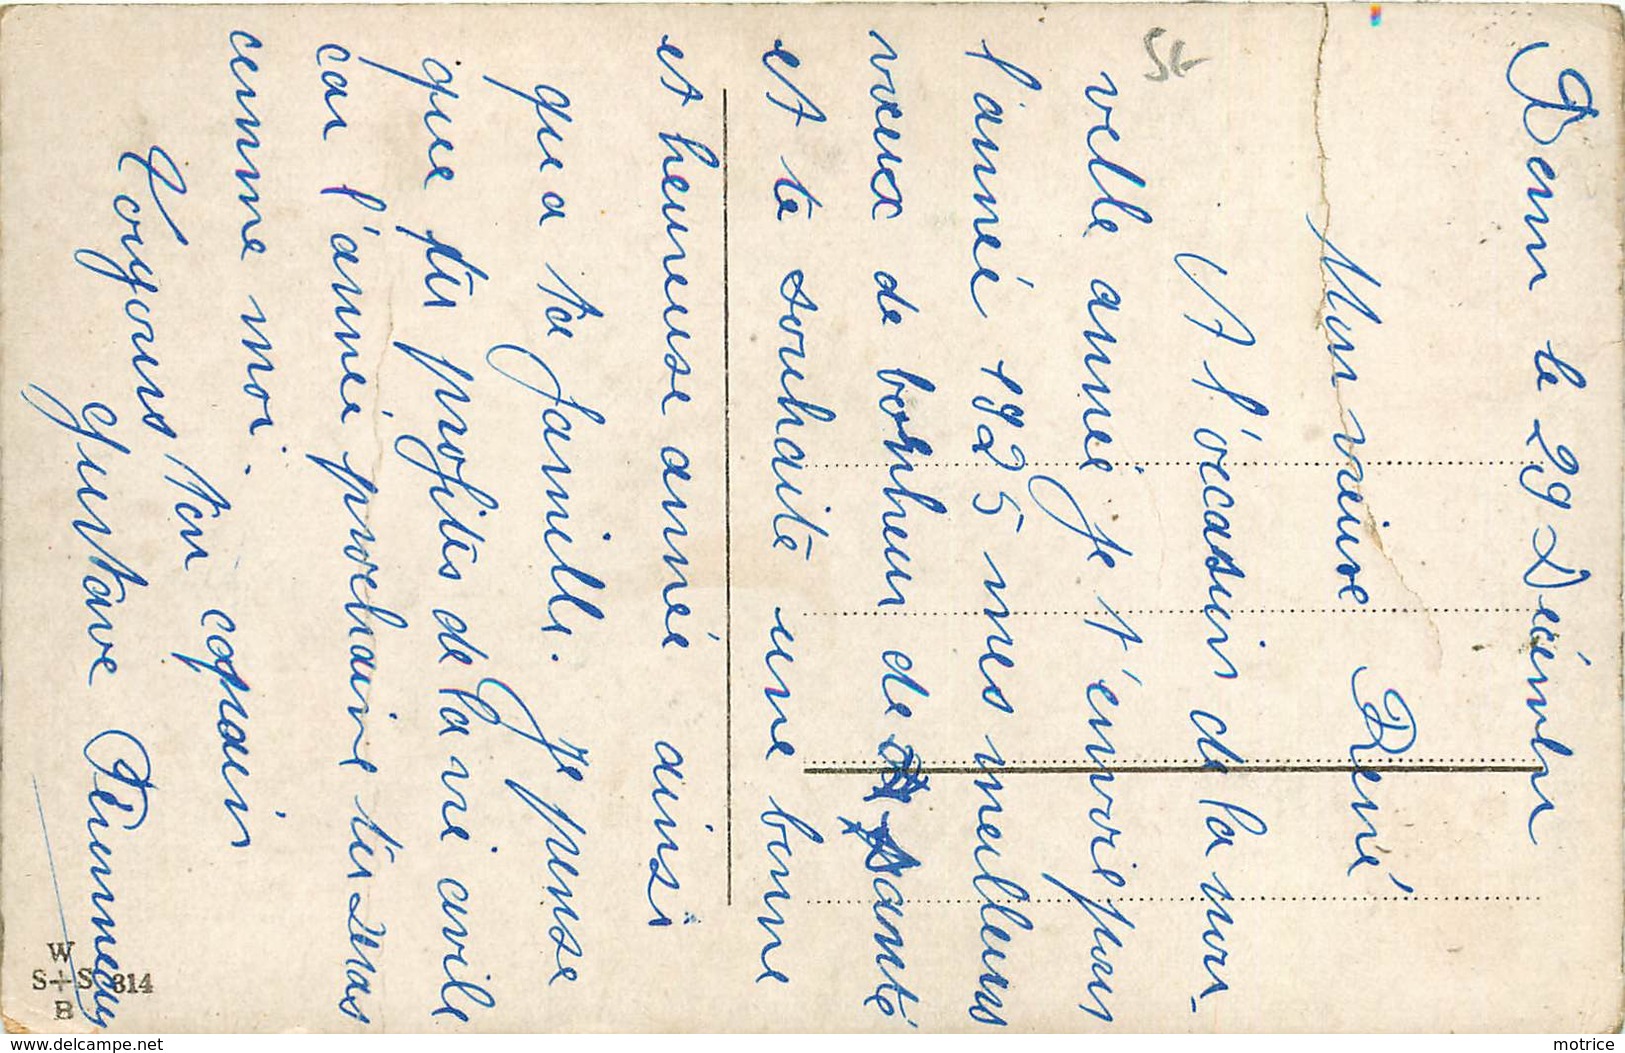 Bonn le 29 Décembre
Mon vieux René
A l'occasion de la nou-
velle anneé je t'envoie pour
l'anneé 1925 mes meilleurs
voeux de bonheur de santé
et te souhaite une bonne
et heureuse anneé ainsi
qu a ta famille. Je pense
que tu profites de la vie civile
car l'anneé prochaine tu seras
comme moi.
Toujours ton copain
Gustave
51-
W
S+S 314
B
delcampe.net
motrice